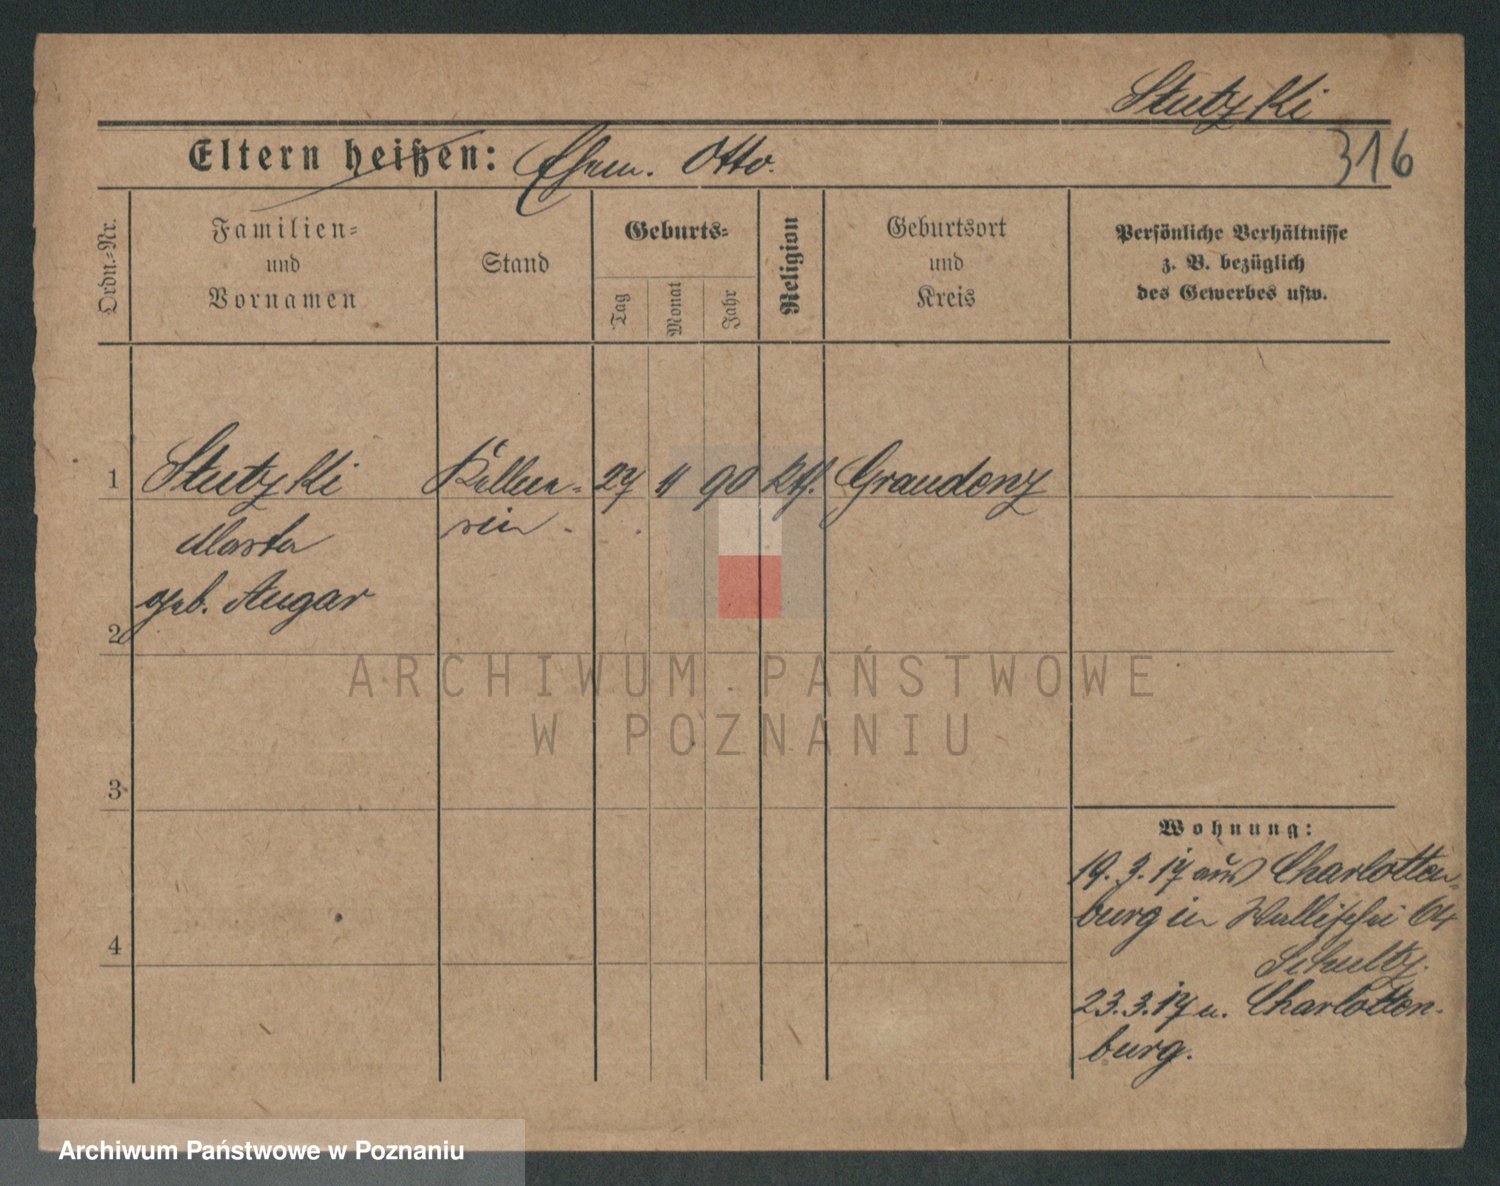 Stutzki
316
Eltern heißen: Ehem. Otto.
Ordn.-Nr.
Familien-
und
Vornamen
Stand
Geburts-
Tag
Monat
Jahr
Religion
Geburtsort
und
Kreis
Persönliche Verhältnisse
z. B. bezüglich
des Gewerbes usw.
1 Stutzki Kellne- 27 11 90 kth. Graudenz
Marta rin
geb. Augar
2
3
4
Wohnung:
19.3.17 aus Charlotten-
burg in Wallischei 64
Schultz.
23.3.17 n. Charlotten-
burg.
ARCHIWUM PAŃSTWOWE
W POZNANIU
Archiwum Państwowe w Poznaniu